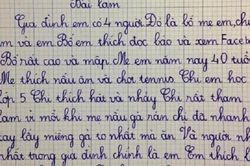 Bài làm
Gia đình em có 4 người Đó là bố mẹ em, chị
em và em Bố em thích đọc báo và xem Faceb
Bố rất cao và mập Mẹ em năm nay 40 tuổ
Mẹ thích nấu ăn và chơi tennis Chị em học
lớp 5 Chị thích hát và nhảy Chị rất tham
lam vì mỗi khi mẹ nấu gà rán chị đã nhanh
tay lấy miếng gà to nhất mà ăn Và người n
nhất trong gia đình chính là em Em thích